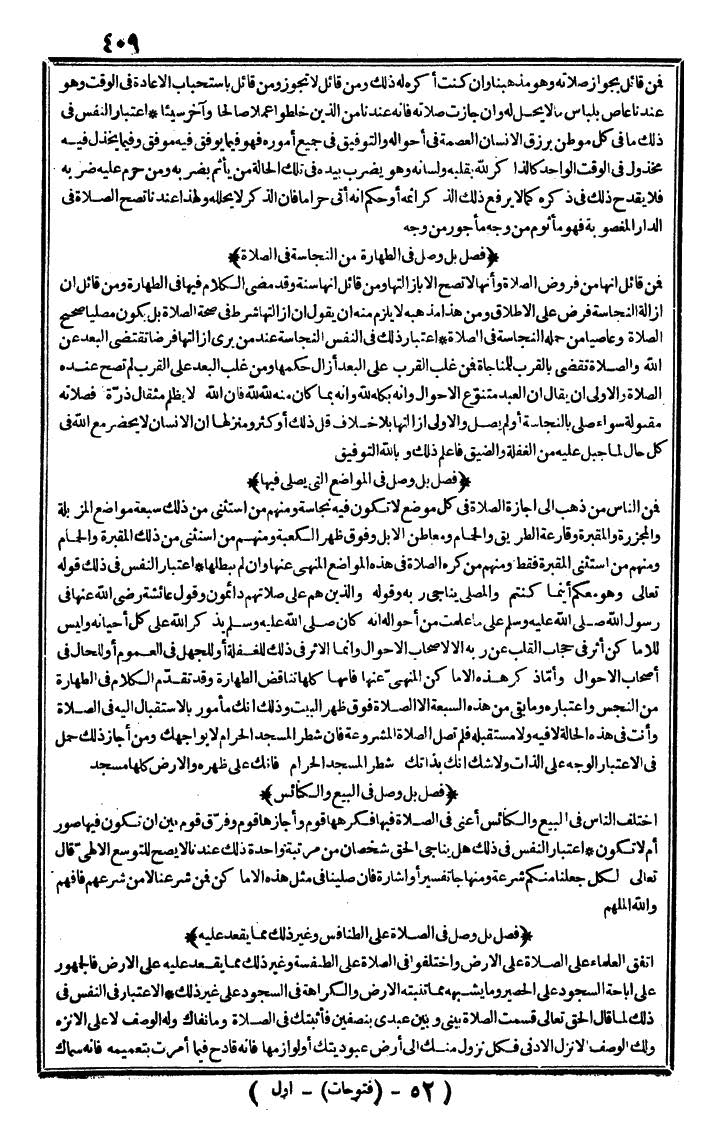 ٤٠٩
فمن قائل بجواز صلاته وهو مذهبنا وان كنت أكره له ذلك ومن قائل لا تجوز ومن قائل باستحباب الاعادة فى الوقت وهو
عندنا عاص بلباس مالا يحل له وان جازت صلاته فانه عندنا من الذين خلطوا عملا صالحا وآخر سيئا * اعتبار النفس فى
ذلك ما فى كل موطن يرزق الانسان العصمة فى أحواله والتوفيق فى جميع أموره فهو فيما يوفق فيه موفق وفيما يخذل فيه
مخذول فى الوقت الواحد كالذا كر لله بقلبه ولسانه وهو يضرب بيده فى تلك الحالة من يأثم بضربه ومن حرم عليه ضربه
فلا يقدح ذلك فى ذكره كما لا يرفع ذلك الذكر اثمه أو حكم انه أتى حراما فان الذكر لا يحلله ولهذا عندنا تصح الصلاة فى
الدار المغصوبة فهو مأثوم من وجه مأجور من وجه
﴿فصل بل وصل فى الطهارة من النجاسة فى الصلاة﴾
فمن قائل انها من فروض الصلاة وأنها لا تصح الا بازالتها ومن قائل انها سنة وقد مضى الكلام فيها فى الطهارة ومن قائل ان
ازالة النجاسة فرض على الاطلاق ومن هذا مذهبه لا يلزم منه ان يقول ان ازالتها شرط فى صحة الصلاة بل يكون مصليا صحيح
الصلاة وعاصيا من حمله النجاسة فى الصلاة * اعتبار ذلك فى النفس النجاسة عند من يرى ازالتها فرضا تقتضى البعد عن
الله والصلاة تقضى بالقرب للمناجاة فمن غلب القرب على البعد أزال حكمها ومن غلب البعد على القرب لم تصح عنده
الصلاة والاولى ان يقال ان العبد متنوّع الاحوال وانه بكله لله وانه بما كان منه لله لله فان الله لا يظلم مثقال ذرّة فصلاته
مقبولة سواء صلى بالنجاسة أولم يصل والاولى ازالتها بلا خلاف قل ذلك أو كثر ومنزلها ان الانسان لا يحضر مع الله فى
كل حال لما جبل عليه من الغفلة والضيق فاعلم ذلك وبالله التوفيق
﴿فصل بل وصل فى المواضع التى يصلى فيها﴾
فمن الناس من ذهب الى اجازة الصلاة فى كل موضع لا تكون فيه نجاسة ومنهم من استثنى من ذلك سبعة مواضع المزبلة
والمجزرة والمقبرة وقارعة الطريق والحمام ومعاطن الابل وفوق ظهر الكعبة ومنهم من استثنى من ذلك المقبرة والحمام
ومنهم من استثنى المقبرة فقط ومنهم من كره الصلاة فى هذه المواضع المنهى عنها وان لم يبطلها * اعتبار النفس فى ذلك قوله
تعالى وهو معكم أينما كنتم والمصلى يناجى ربه وقوله والذين هم على صلاتهم دائمون وقول عائشة رضى الله عنها فى
رسول الله صلى الله عليه وسلم على ما علمت من أحواله انه كان صلى الله عليه وسلم يذكر الله على كل أحيانه وليس
للاماكن أثر فى حجاب القلب عن ربه الا لاصحاب الاحوال وانما الاثر فى ذلك للغفلة أو للجهل فى العموم أو للحال فى
أصحاب الاحوال وأمّا ذكر هذه الاماكن المنهىّ عنها فانها كلها تناقض الطهارة وقد تقدّم الكلام فى الطهارة
من النجس واعتباره وما بقى من هذه السبعة الا الصلاة فوق ظهر البيت وذلك انك مأمور بالاستقبال اليه فى الصلاة
وأنت فى هذه الحالة لا فيه ولا مستقبله فلم تصل الصلاة المشروعة فان شطر المسجد الحرام لا يواجهك ومن أجاز ذلك حمل
فى الاعتبار الوجه على الذات ولا شك انك بذاتك شطر المسجد الحرام فانك على ظهره والارض كلها مسجد
﴿فصل بل وصل فى البيع والكنائس﴾
اختلف الناس فى البيع والكنائس أعنى فى الصلاة فيها فكرهها قوم وأجازها قوم وفرّق قوم بين ان تكون فيها صور
أم لا تكون * اعتبار النفس فى ذلك هل يناجى الحق شخصان من مرتبة واحدة ذلك عندنا لا يصح للتوسع الالهىّ قال
تعالى لكل جعلنا منكم شرعة ومنهاجا تفسير أو اشارة فان صلينا فى مثل هذه الاماكن فمن شرعنا لا من شرعهم فافهم
والله الملهم
﴿فصل بل وصل فى الصلاة على الطنافس وغير ذلك مما يقعد عليه﴾
اتفق العلماء على الصلاة على الارض واختلفوا فى الصلاة على الطنفسة وغير ذلك مما يقعد عليه على الارض فالجمهور
على اباحة السجود على الحصير وما يشبهه مما تنبته الارض والكراهة فى السجود على غير ذلك * الاعتبار فى النفس فى
ذلك لما قال الحق تعالى قسمت الصلاة بينى وبين عبدى بنصفين فأثبتك فى الصلاة وما نفاك وله الوصف لا على الانزه
ولك الوصف الانزل الادنى فكل نزول منك الى أرض عبوديتك أو لوازمها فانه قادح فيما أمرت بتعميمه فانه سماك
( ٥٢ - (فتوحات) - اول )